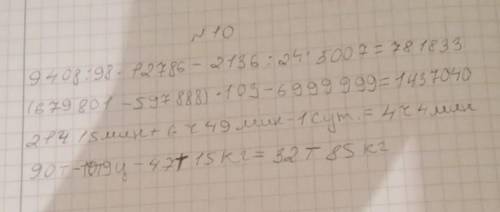 №10
9408:98·12786-2136:24·5007=781833
(679801-597888)·103-6999999=1437040
21415мин+6ч49мин-1сут.=4ч4мин
90т-19ц-47т15кг=32т85кг